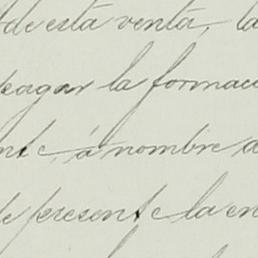 de esta venta, la
pagar la formac
nte, á nombre d
de presente la en